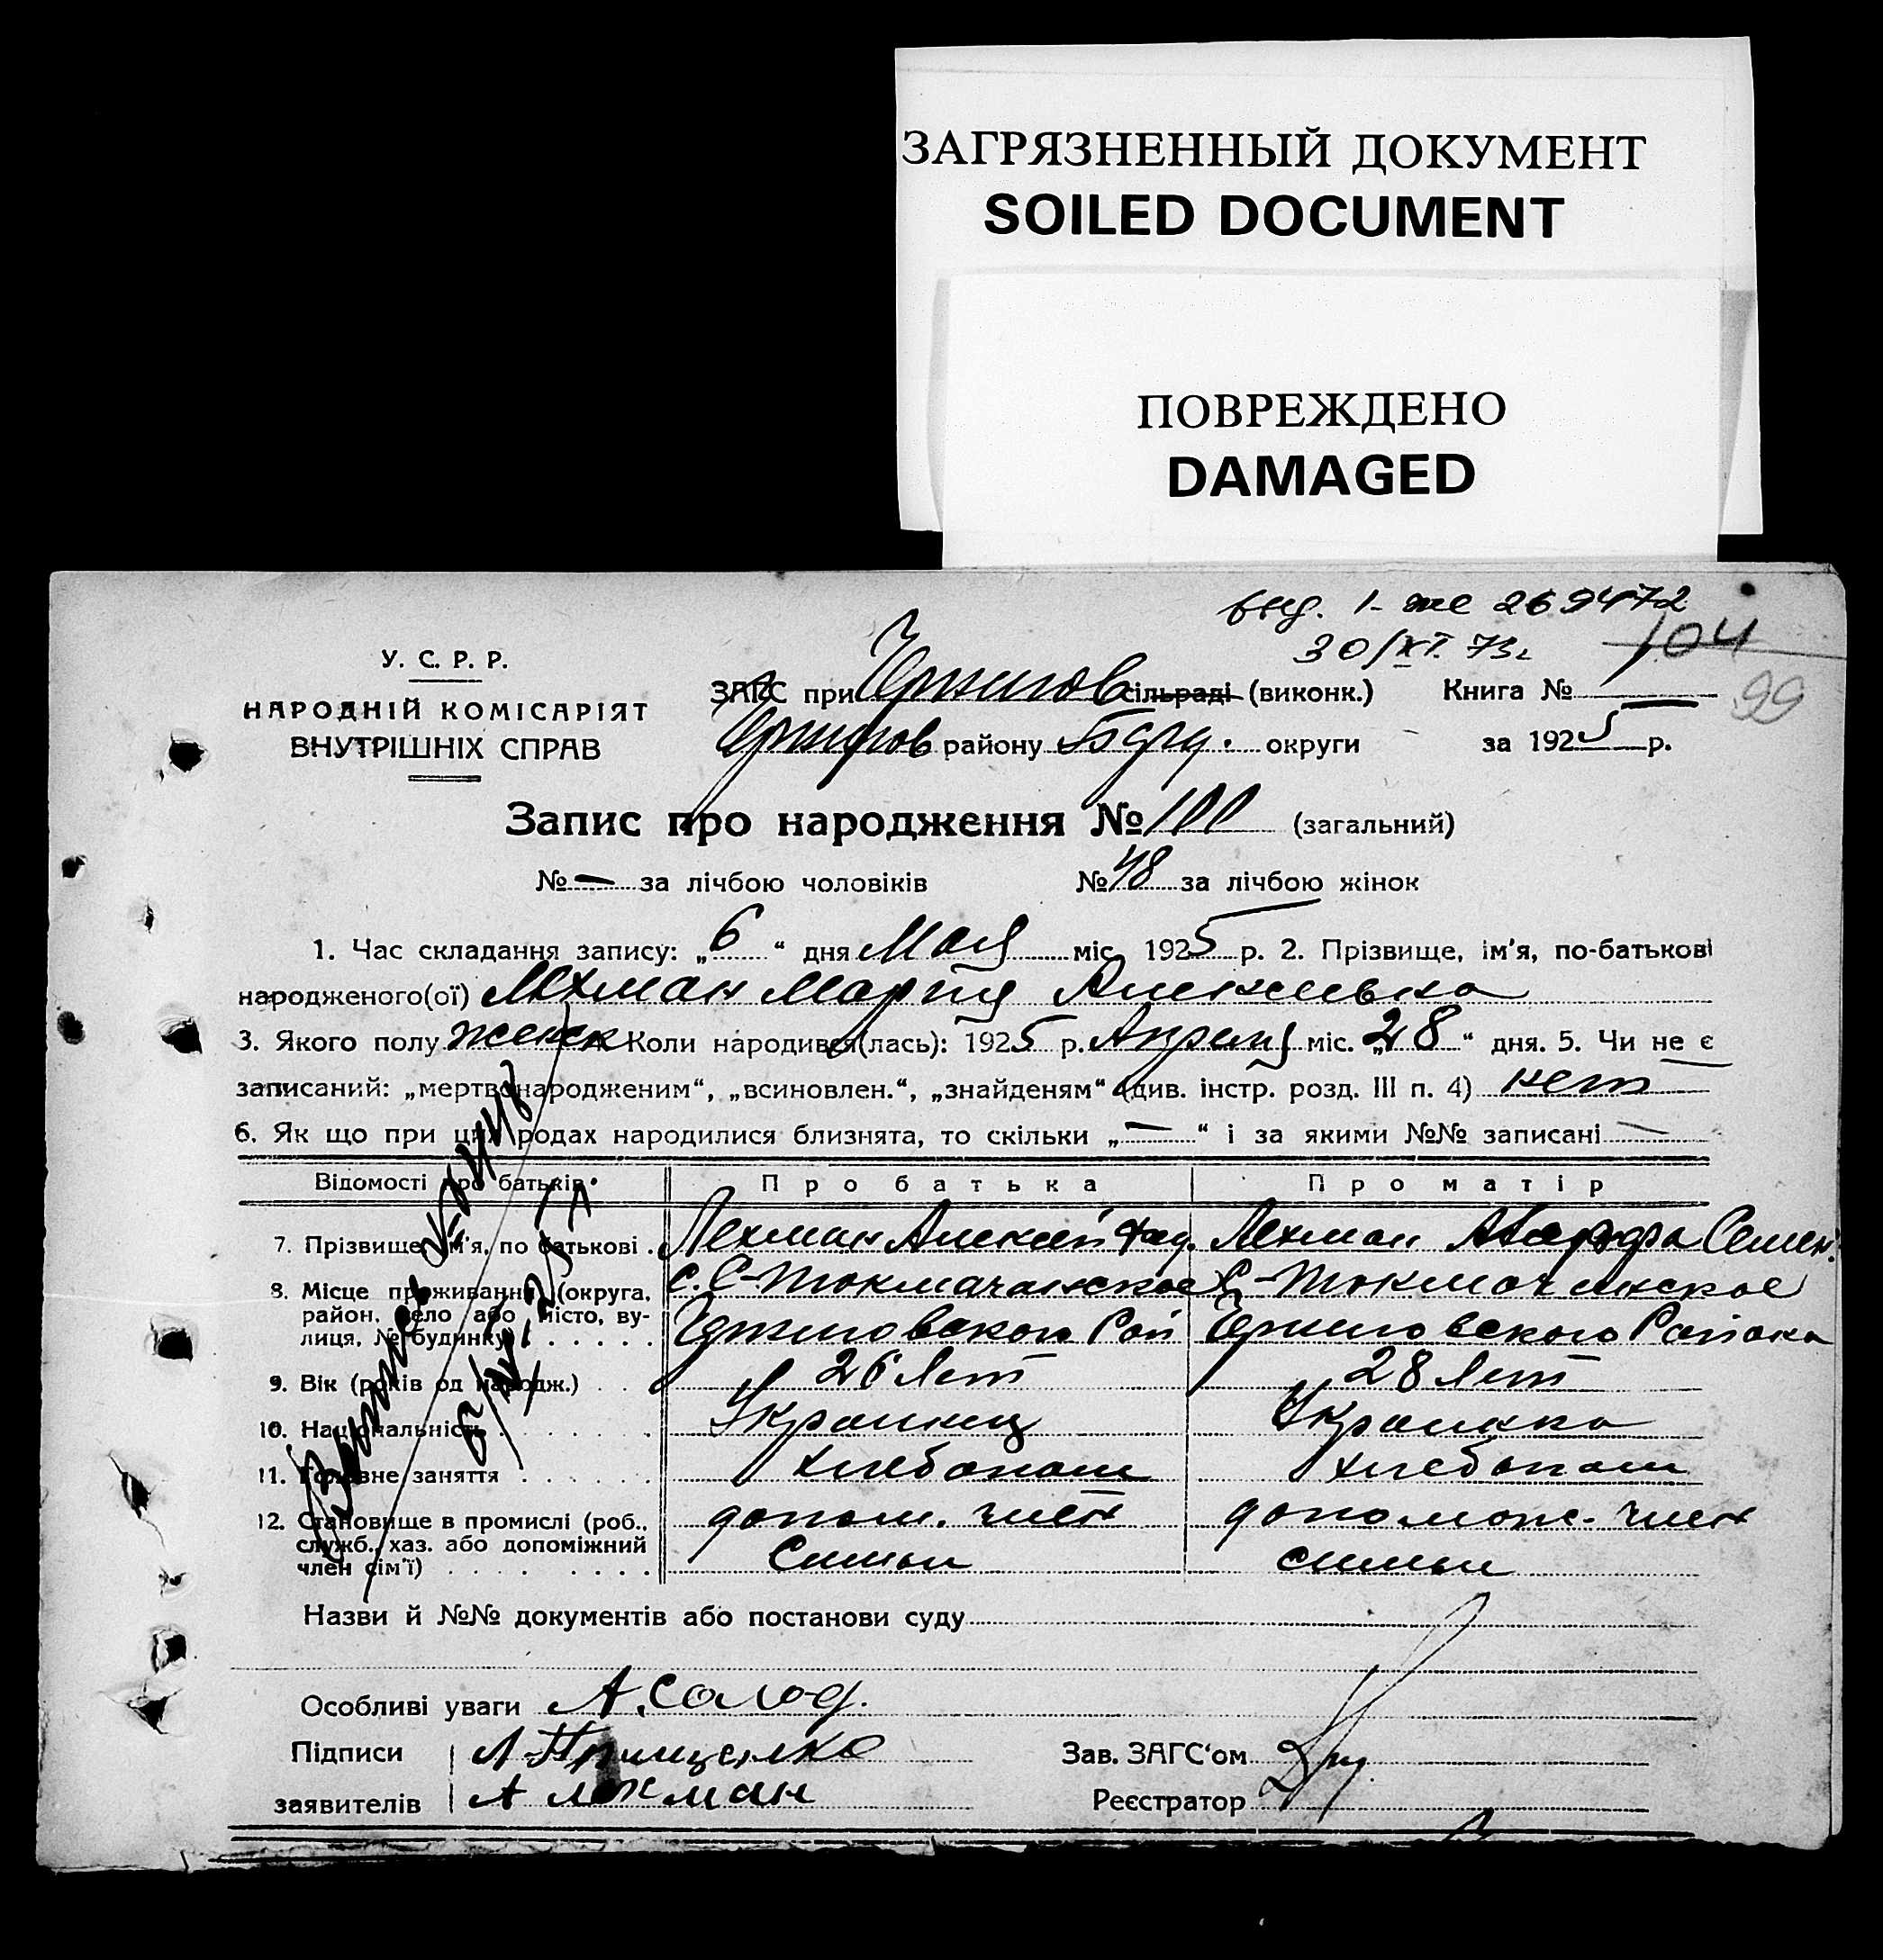 ЗАГРЯЗНЕННЫЙ ДОКУМЕНТ
SOILED DOCUMENT
ПОВРЕЖДЕНО
DAMAGED
выд. 1-же 269472
30/XI. 73г
104
99
У. С. Р. Р.
НАРОДНІЙ КОМІСАРІЯТ
ВНУТРІШНІХ СПРАВ
ЗАГС при Чернигов сільраді (виконк.) Книга №
Чернигов району Берд. округи за 1925 р.
Запис про народження № 100 (загальний)
№ — за лічбою чоловіків № 48 за лічбою жінок
1. Час складання запису: „6“ дня Мая міс. 1925 р. 2. Прізвище, ім'я, по-батькові
народженого(ої) Лехман Мария Алексеевна
3. Якого полу женск Коли народився(лась): 1925 р. Апреля міс. „28“ дня. 5. Чи не є
записаний: „мертвонародженим“, „всиновлен.“, „знайденям“ (див. інстр. розд. III п. 4) нет
6. Як що при цих родах народилися близнята, то скільки „—“ і за якими №№ записані —
Відомості про батьків Про батька Про матір
7. Прізвище, ім'я, по батькові . Лехман Алексей Лехман Семен.
8. Місце проживання (округа, район, село або місто, ву-лиця, № будинку) с. С-Токмачанское С-Токмочанское
Черниговского Рай Черниговского Района
9. Вік (років од народж.) . . 26 Лет 28 Лет
10. Національність . . . . . . . Украинец Украинка
11. Головне заняття . . . . . . Хлебопаш Хлебопаш
12. Становище в промислі (роб., служб., хаз. або допоміжний член сім'ї) . . . . . . . допом. член допомож. член
Симьи симьи
Назви й №№ документів або постанови суду
Особливі уваги А. Солод.
Підписи Зав. ЗАГС'ом
заявителів А Лехман Реєстратор